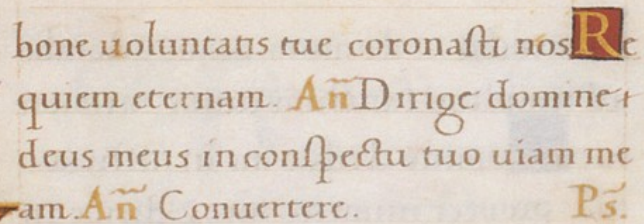 bone uoluntatis tue coronaſti nos Re
quiem eternam. An̄ Dirige domine
deus meus in conſpectu tuo uiam me
am. An̄ Conuertere. Ps̄.